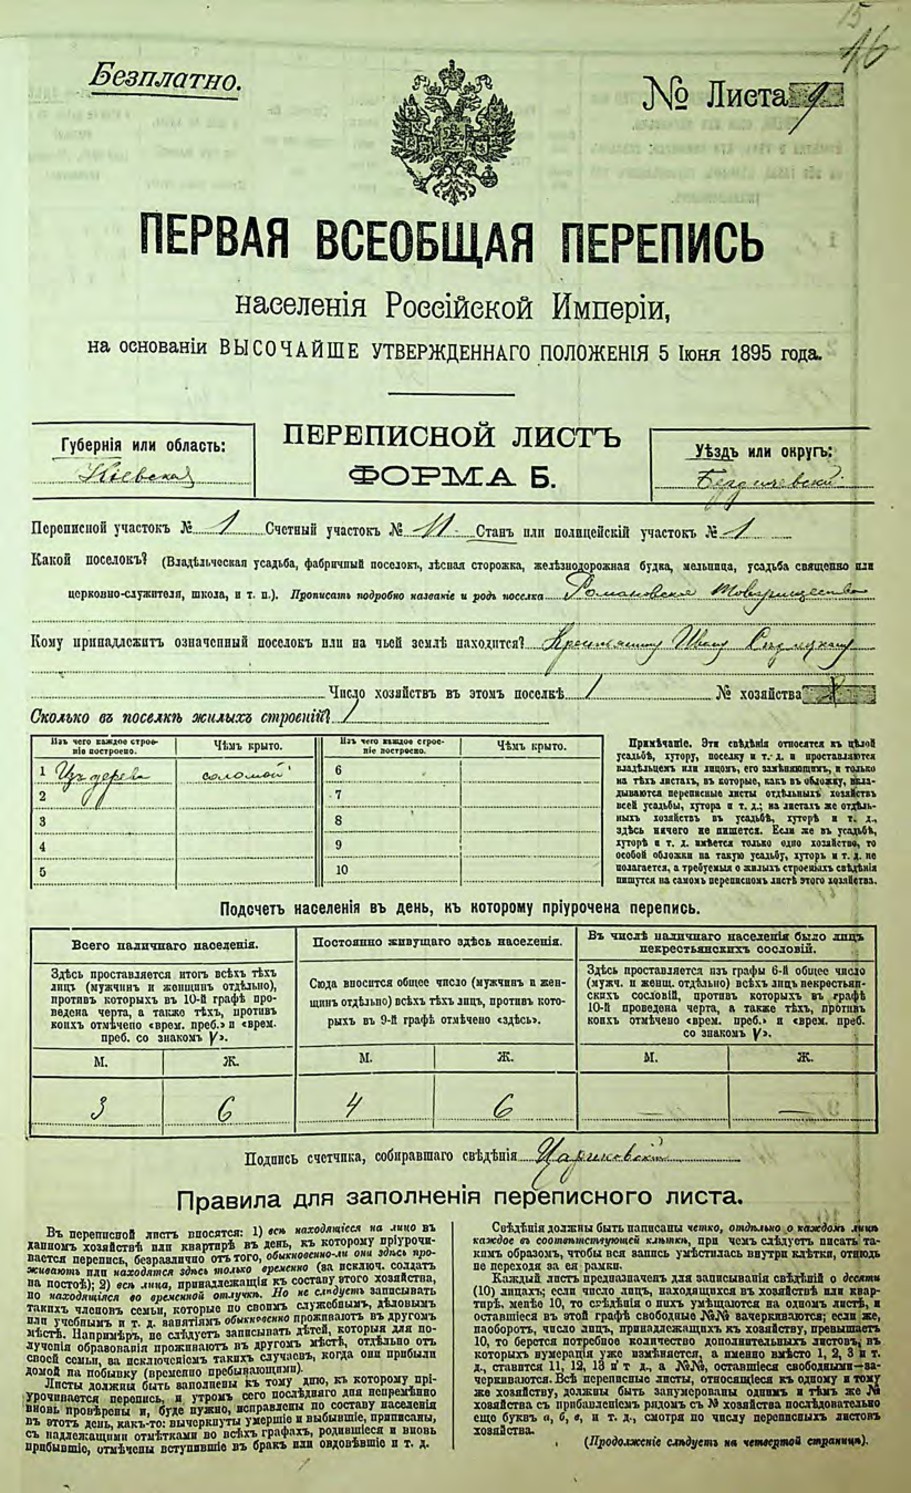 15
16
Безплатно.
№ Листа 9
ПЕРВАЯ ВСЕОБЩАЯ ПЕРЕПИСЬ
населенія Россійской Имперіи,
на основаніи ВЫСОЧАЙШЕ УТВЕРЖДЕННАГО ПОЛОЖЕНІЯ 5 Іюня 1895 года.
Губернія или область:
Кіевская
ПЕРЕПИСНОЙ ЛИСТЪ
ФОРМА Б.
Уѣздъ или округъ:
Бердичевскій
Переписной участокъ № 1 Счетный участокъ № 11 Станъ или полицейскій участокъ № 1
Какой поселокъ? (Владѣльческая усадьба, фабричный поселокъ, лѣсная сторожка, желѣзнодорожная будка, мельница, усадьба священно или
церковно-служителя, школа, и т. п.). Прописать подробно названіе и родъ поселка Романовское Товарищество
Кому принадлежитъ означенный поселокъ или на чьей землѣ находится? Крестьянину Ивану
Число хозяйствъ въ этомъ поселкѣ 1 № хозяйства
Сколько въ поселкѣ жилыхъ строеній? 1
Изъ чего каждое строе-
ніе построено.
Чѣмъ крыто.
Изъ чего каждое строе-
ніе построено.
Чѣмъ крыто.
1 Изъ дерева соломой 6
2 7
3 8
4 9
5 10
Примѣчаніе. Эти свѣдѣнія относятся къ цѣлой
усадьбѣ, хутору, поселку и т. д. и проставляются
владѣльцемъ или лицомъ, его замѣняющимъ, и только
на тѣхъ листахъ, въ которые, какъ въ обложку, вкла-
дываются переписные листы отдѣльныхъ хозяйствъ
всей усадьбы, хутора и т. д.; на листахъ же отдѣль-
ныхъ хозяйствъ въ усадьбѣ, хуторѣ и т. д.,
здѣсь ничего не пишется. Если же въ усадьбѣ,
хуторѣ и т. д. имѣется только одно хозяйство, то
особой обложки на такую усадьбу, хуторъ и т. д. не
полагается, а требуемыя о жилыхъ строеніяхъ свѣдѣнія
пишутся на самомъ переписномъ листѣ этого хозяйства.
Подсчетъ населенія въ день, къ которому пріурочена перепись.
Всего наличнаго населенія.
Здѣсь проставляется итогъ всѣхъ тѣхъ
лицъ (мужчинъ и женщинъ отдѣльно),
противъ которыхъ въ 10-й графѣ про-
ведена черта, а также тѣхъ, противъ
коихъ отмѣчено «врем. преб.» и «врем.
преб. со знакомъ V».
М. Ж.
3 6
Постоянно живущаго здѣсь населенія.
Сюда вносится общее число (мужчинъ и жен-
щинъ отдѣльно) всѣхъ тѣхъ лицъ, противъ кото-
рыхъ въ 9-й графѣ отмѣчено «здѣсь».
М. Ж.
4 6
Въ числѣ наличнаго населенія было лицъ
некрестьянскихъ сословій.
Здѣсь проставляется изъ графы 6-й общее число
(мужч. и женщ. отдѣльно) всѣхъ лицъ некрестьян-
скихъ сословій, противъ которыхъ въ графѣ
10-й проведена черта, а также тѣхъ, противъ
коихъ отмѣчено «врем. преб.» и «врем. преб.
со знакомъ V».
М. Ж.
— —
Подпись счетчика, собиравшаго свѣдѣнія Цариковскій
Правила для заполненія переписного листа.
Въ переписной листъ вносятся: 1) всѣ находящіеся на лицо въ
данномъ хозяйствѣ или квартирѣ въ день, къ которому пріурочи-
вается перепись, безразлично отъ того, обыкновенно-ли они здѣсь про-
живаютъ или находятся здѣсь только временно (за исключ. солдатъ
на постоѣ); 2) всѣ лица, принадлежащія къ составу этого хозяйства,
но находящіяся во временной отлучкѣ. Но не слѣдуетъ записывать
такихъ членовъ семьи, которые по своимъ служебнымъ, дѣловымъ
или учебнымъ и т. д. занятіямъ обыкновенно проживаютъ въ другомъ
мѣстѣ. Напримѣръ, не слѣдуетъ записывать дѣтей, которыя для по-
лученія образованія проживаютъ въ другомъ мѣстѣ, отдѣльно отъ
своей семьи, за исключеніемъ такихъ случаевъ, когда они прибыли
домой на побывку (временно пребывающими).
Листы должны быть заполнены къ тому дню, къ которому прі-
урочивается перепись, и утромъ сего послѣдняго дня непремѣнно
вновь провѣрены и, буде нужно, исправлены по составу населенія
въ этотъ день, какъ-то: вычеркнуты умершіе и выбывшіе, приписаны,
съ надлежащими отмѣтками во всѣхъ графахъ, родившіеся и вновь
прибывшіе, отмѣчены вступившіе въ бракъ или овдовѣвшіе и т. д.
Свѣдѣнія должны быть написаны четко, отдѣльно о каждомъ лицѣ
каждое въ соотвѣтствующей клѣткѣ, при чемъ слѣдуетъ писать та-
кимъ образомъ, чтобы вся запись умѣстилась внутри клѣтки, отнюдь
не переходя за ея рамки.
Каждый листъ предназначенъ для записыванія свѣдѣній о десяти
(10) лицахъ; если число лицъ, находящихся въ хозяйствѣ или квар-
тирѣ, менѣе 10, то свѣдѣнія о нихъ умѣщаются на одномъ листѣ, и
оставшіеся въ этой графѣ свободные №№ вачеркиваются; если же,
наоборотъ, число лицъ, принадлежащихъ къ хозяйству, превышаетъ
10, то берется потребное количество дополнительныхъ листовъ, въ
которыхъ нумерація уже измѣняется, а именно вмѣсто 1, 2, 3 и т.
д., ставится 11, 12, 13 и т д., а №№, оставшіеся свободными—за-
черкиваются. Всѣ переписные листы, относящіеся къ одному и тому
же хозяйству, должны быть занумерованы однимъ и тѣмъ же №
хозяйства съ прибавленіемъ рядомъ съ № хозяйства послѣдовательно
еще буквъ а, б, в, и т. д., смотря по числу переписныхъ листовъ
хозяйства.
(Продолженіе слѣдуетъ на четвертой страницѣ).